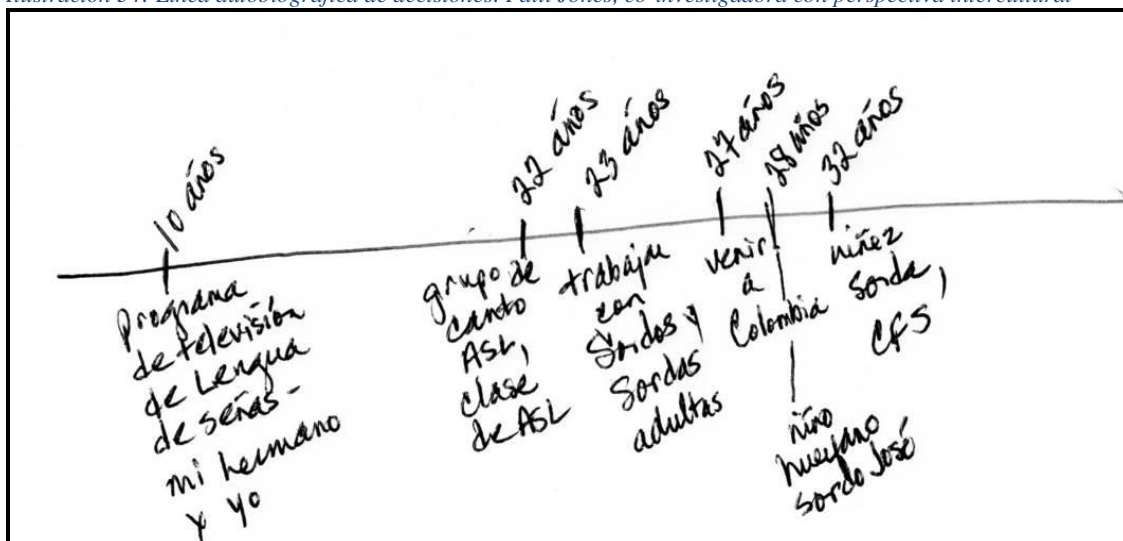 Ilustración 34. Línea autobiográfica de decisiones. Patti Jones, co-investigadora con perspectiva intercultural
10 años
Programa
de televisión
de Lengua
de señas -
mi hermano
y yo
22 años
grupo de
canto
ASL,
clase
de ASL
23 años
trabajar
con
Sordos y
Sordas
adultas
27 años
venir
a
Colombia
28 años
niño
huerfano
sordo José
32 años
niñez
Sorda,
CFS